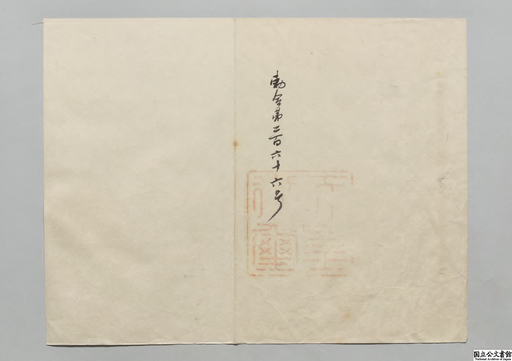 勅令第二百六十六号
国立公文書館
National Archives of Japan